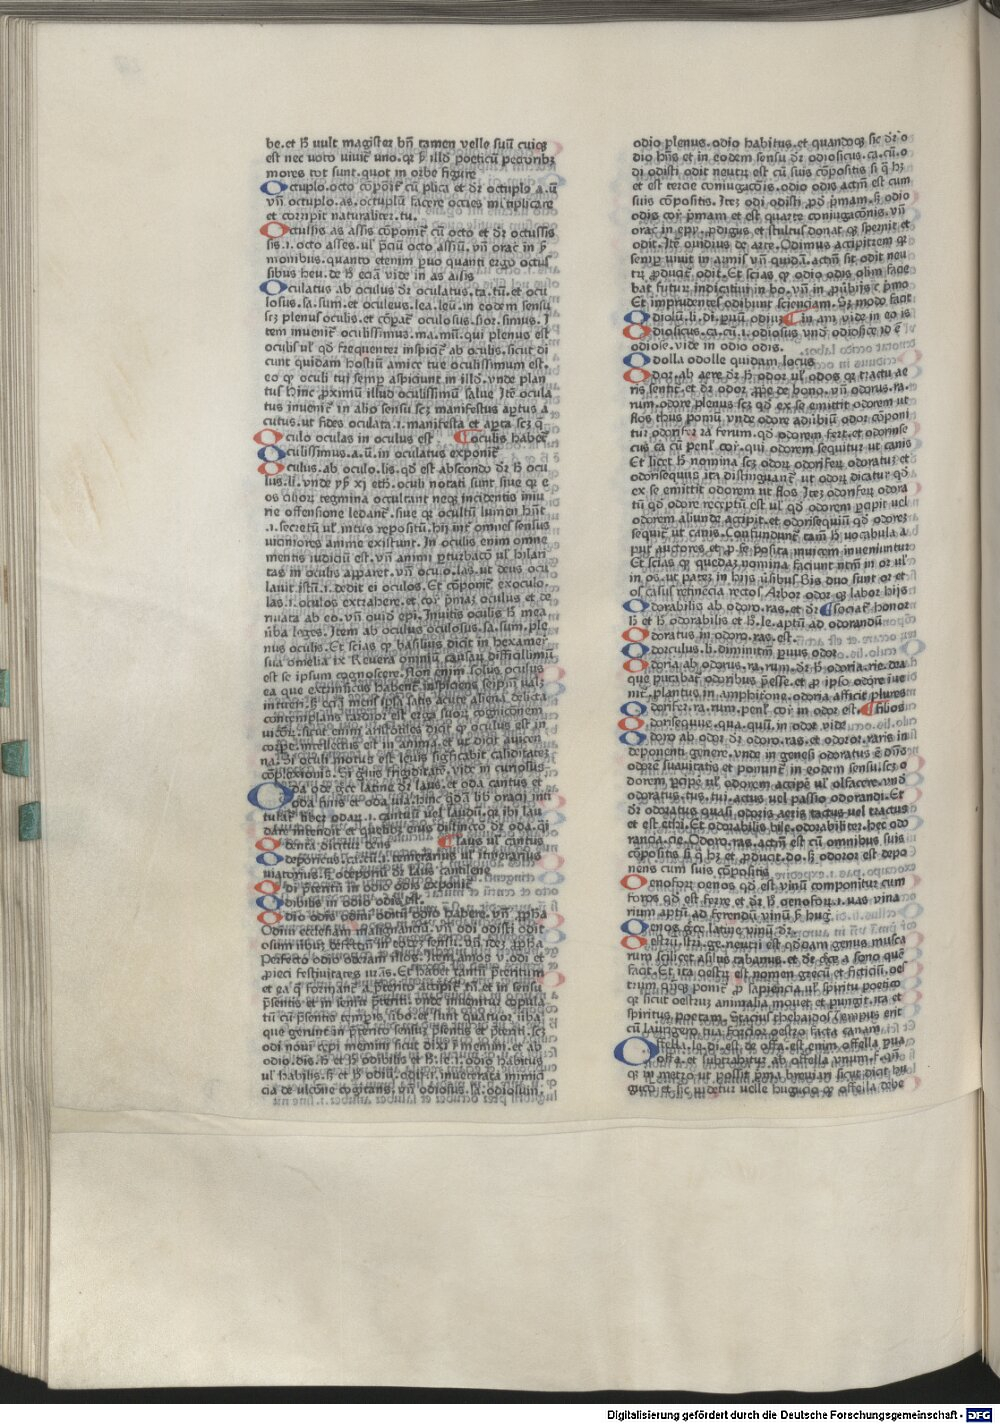 be.et ħ vult magister bñ tamen velle suũ cuiqꝫ
est nec voto vivit᷑ uno.qꝛ ꝑ illđ poeticũ pectoribꝫ
mores tot sunt.quot in orbe figure
Octuplo.octo cõponit᷑ cũ plica et dr̃ octuplo a.ũ
vñ octuplo.as.octuplũ facere octies mĺtiplicare
et corripit naturaliter.tu.
Octussis as assis cõponit᷑ cũ octo et dr̃ octussis
sis.i.octo asses.ul̃ p̃ciũ octo assiũ.vñ orac̃ in p̃
monibus.quanto etenim ꝑuo quanti ergo octus
sibus heu.de ħ eciã vide in as assis
Oculatus ab oculus dr̃ oculatus.ta.tũ.et ocu
losus.sa.sum.et oculeus.lea.leu.in eodem sensu
scꝫ plenus oculis.et cõpat᷑ oculosus.sior.simus.I
tem inuenit᷑ oculissimus.ma.mũ.qui plenus est
oculis ul̃ qđ frequenter inspicit᷑ ab oculis.sicut di
cunt quidam hostiũ amice tue oculissimum est.
eo qꝛ oculi tui semꝑ aspiciunt in illđ.vnde plau
tus hinc ꝓximũ illud oculissimũ salue Itẽ ocula
tus inuenit᷑ in alio sensu scꝫ manifestus aꝑtus a
cutus.ut fides oculata.i.manifesta et aꝑta scꝫ q̃
Oculo oculas in oculus est ¶ oculis habet᷑
Oculissimus.a.ũ.in oculatus exponit᷑
Oculus.ab oculo.lis.qđ est abscondo dr̃ ħ ocu
lus.li.vnde ysid xj eth̃.oculi notati sunt siue qꝛ e
os cilior̃ tegmina occultant neqꝫ incidentis iniu
rie offensione ledant᷑.siue qꝛ occultũ lumen hñt
.i.secretũ ul̃ intus repositũ.hij int᷑ omnes sensus
viciniores anime existunt.In oculis enim omne
mentis iudiciũ est.vñ animi ꝑturbac̃o ul̃ hilari
tas in oculis apparet.vñ oculo.las.ut deus ocu
lauit istũ.i.dedit ei oculos.Et cõponit᷑ exoculo.
las.i.oculos extrahere.et cor̃ p̃maꝫ oculus et de
riuata ab eo.vñ ouid epi.Inuitis oculis ħ mea
ũba leges.Item ab oculus oculosus.sa.sum.ple
nus oculis.Et scias qꝛ basilius dicit in hexamer̃
sua omelia ix Reuera omniũ causar̃ difficillimũ
est se ipsum cognoscere.Non enim solus oculus
ea que extrinsecus habent᷑.inspiciens seip̃m ual₃
intueri.s̃ eciã mens ipsa satis acute aliena delicta
contemplans tardior est erga suor̃ cognicõnem
vicior̃.sicut enim aristotiles dicit qꝛ oculus est in
corpe.intellectus est in anima.et ut dicit auicen
na.Si oculi motus est leuis significabit caliditateꝫ
cõplexionis.Si g̃uis frigiditatẽ.vide in curiosus
Oda ode g̃ce latine dr̃ laus.et oda cantus et
oda finis et oda uia.hinc qdã lib̃ oracij inti
tulat᷑ liber odar̃.i.cantuũ uel laudũ.qꝛ ibi lau
dare intendit et quelibꝫ eius distinctio dr̃ oda.qi
Odenta dicitur dens ¶ laus ul̃ cantus
Odeporicus.ca.cũ.i.temerarius ul̃ itinerarius
viatorius.s̃ oteporiũ dr̃ laus cantilene
Odi p̃teritũ in odio odis exponit᷑
Odibilis in odio odis est.
Odio odis odiui oditũ odio habere.vñ ꝓpħa
Odiui ecclesiam malignanciũ.vñ odi odisti odit
osimꝫ ibꝫ.defectiũ in eodeꝫ sensu.vñ ideꝫ ꝓpħa
Perfecto odio oderam illos.Item.amos v.odi et
ꝓieci festiuitates ur̃as.Et habet tantũ p̃teritum
et ea q̃ formant᷑ a p̃terito accipit᷑ tñ.et in sensu
p̃sentis et in sensu p̃teriti.vnde inuenitur copula
tũ cũ p̃sentis tempis ũbo.et sunt quatuor ũba
que gerunt in p̃terito sensum p̃sentis et p̃teriti.scꝫ
odi noui cepi memini sicut dixi ĩ memini.et ab
odio.dis.ħ et ħ odibilis et ħ.le.i.odio habitus
ul̃ habilis.s̃ et ħ odiũ.odij.i.inueterata inimici
cia de ulcõne cogitans.vñ odiosus.sa.odiosum.
odio plenus.odio habitus.et quandoqꝫ sic dr̃ o
dio hñs et in eodem sensu dr̃ odiosicus.ca.cũ.o
di odisti odit neutr̃ est cũ suis cõpositis si q̃ hꝫ
et est tercie coniugac̃ois.odio odis actm̃ est cum
suis cõpositis.Iteꝫ odi odisti ꝓđ p̃mam.s̃ odio
odis cor̃ p̃mam et est quarte coniugacõnis.vñ
orac̃ in epp.ꝓdigus et stultus donat qꝛ spernit et
odit.Itẽ ouidius de arte.Odimus accipitrem qꝛ
semꝑ viuit in armis vñ quidã.actm̃ sit odit neu
tr̃ ꝓducit᷑ odit.Et scias qꝛ odio odis olim facie
bat futur̃ indicatiui in bo.vñ in ꝓũbijs c̃ p̃mo
Et imprudentes odibunt scienciam.Sꝫ modo facit
Odiolũ.li.di.ꝑuũ odiũꝫ ¶ in am vide in eo is
Odiosicus.ca.cũ.i.odiosus vnđ odiosice id ẽ
odiose.vide in odio odis.
Odolla odolle quidam locus
Odor ab aere dr̃ ħ odor ul̃ odos qꝛ tractu ae
ris sentit᷑.et dr̃ odor ꝓp̃e de bono.vñ odorus.ra.
rum.odore plenus scꝫ qđ ex se emittit odorem ut
flos thus pomũ.vnde odore ad ũbiũ odor cõponi
tur odorifer ra ferum.qđ odorem fert.et odorinse
cus ca cũ penl̃ cor̃.qui odorem sequitur ut canis
Et licet ħ nomina scꝫ odor̃ odorifer̃ odoratus et
odorisequus ita distinguant᷑ ut odor̃ dicatur qđ
ex se emittit odorem ut flos Iteꝫ odorifer̃ odora
tũ qđ odore receptũ est ul̃ qđ odorem ꝑcipit uel
odorem aliunde accipit.et odorisequũ qđ odoreꝫ
sequit᷑ ut canis.Confundunt᷑ tam̃ ħ vocabula a
pur auctores et ꝓ se posita inuicem inueniuntur
Et scias qꝛ quedaꝫ nomina faciunt nt̃m in or ul̃
in os.ut pateꝫ in hijs ũsibus Bis duo sunt or et
os casus retinẽcia rectos Arbor odor qꝫ labor hijs
Odorabilis ab odoro.ras.et dr̃ ¶ sociat᷑ honor
ħ et ħ odorabilis et ħ.le.aptũ ad odorandũ
Odoratus in odoro.ras.est.
Odorculus.li.diminitiũ ꝑuus odor
Odoria ab odorus.ra.rum.dr̃ ħ odoria.rie.dea
que putabat᷑ odoribus p̃esse.et ꝓ ipso odore ĩue
nit᷑.plantus in amphitrione.odoria afficit plures
Odorifer.ra.rum.penl̃ cor̃ in odor est. ¶ filios
Odorisequus.qua.quũ.in odor vide
Odoro ab odor dr̃ odoro.ras.et odoror.raris in
deponenti genere.vnde in genesi odoratus ẽ dñs
odorẽ suauitatis et ponunt᷑ in eodem sensu.scꝫ o
dorem ꝑciꝑe ul̃ odorem accipe ul̃ olfacere.vnđ
odoratus.tus.tui.actus uel passio odorandi.Et
dr̃ odoratus quasi odoris aeris tactus uel tractus
et est ethi.Et odorabilis bile.odorabiliter.hec odo
rancia.cie.Odoro.ras.actm̃ est cũ omnibus suis
cõpositis si q̃ hꝫ et ꝓducit.do.s̃ odoror est depo
nens cum suis cõpositis
Oenofor̃ oenos qđ est vinũ componitur cum
foros qđ est ferre et dr̃ ħ oenofor̃.i.uas vina
rium aptũ ad ferendũ vinũ s̃ hug
Oenos g̃ce latine vinũ dr̃.
Oestrũ.stri.ge.neutri est qđdam genus musca
rum scilicet asilus tabanus.et dr̃ g̃ce a sono quẽ
facit.Et ita oestr̃ est nomen grecũ et ficticiũ.oes
trum qñqꝫ ponit᷑ ꝓ sapiencia ul̃ spiritu poetico
qꝛ sicut oestrus animalia mouet et pungit.ita et
spiritus poetam.Stacius thebaidos Tempus erit
cũ laurigero tua forcior oestro facta canam
Offella.le.di.est de offa.est enim offella ꝑua
offa.et subtrahitur ab offella vnum.f.qñ.
qꝛ in metro ut possit p̃ma breuiari sicut dicit hu
guc̃o et sic videtur uelle hugucio qꝛ offella debe
Digitalisierung gefördert durch die Deutsche Forschungsgemeinschaft - DFG